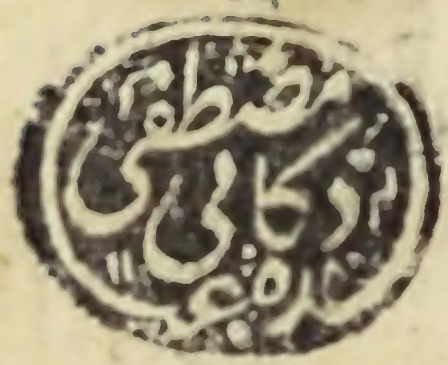 مصطفى
ذكائى
عبده